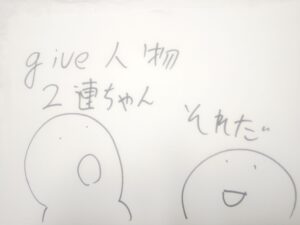 give人物
2連ちゃん
それだ